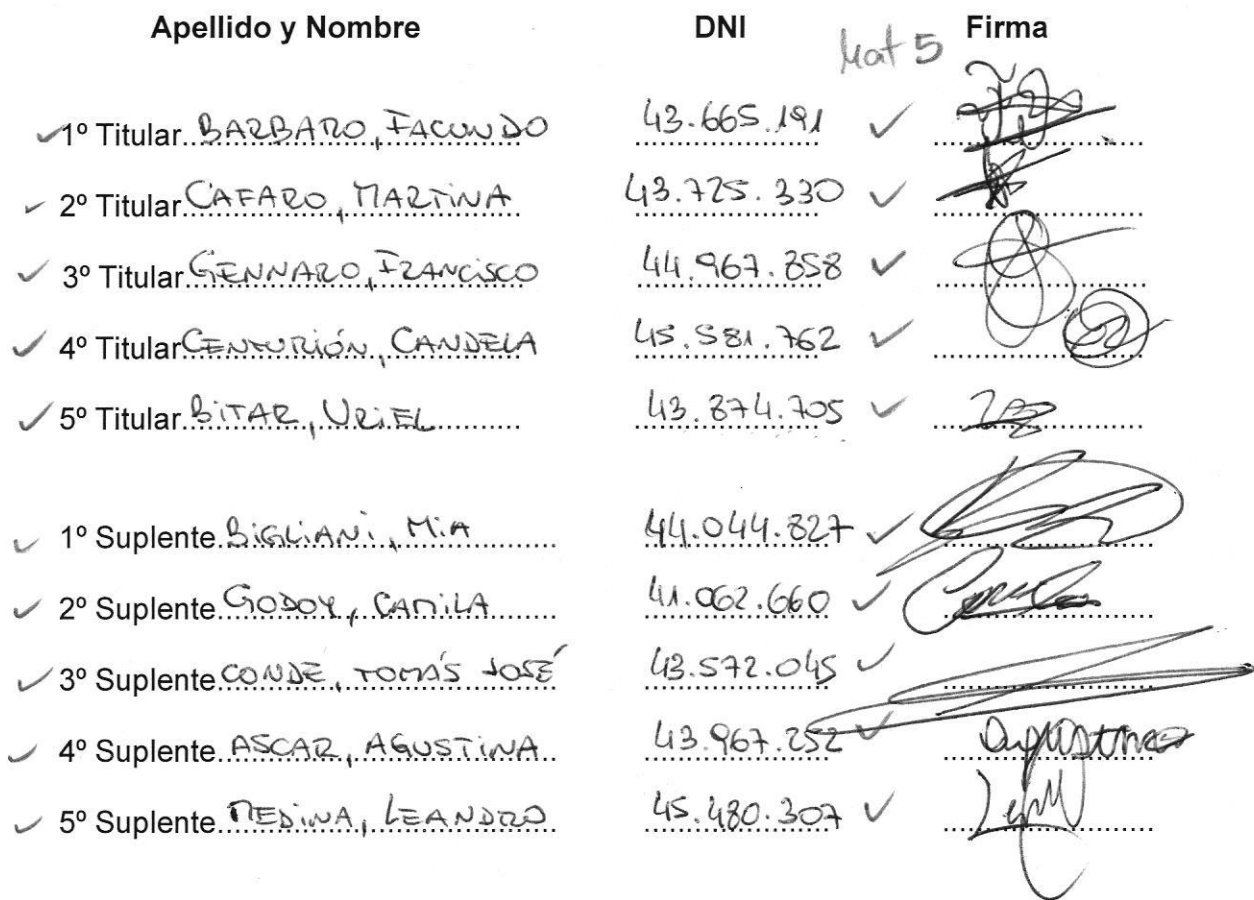 Apellido y Nombre DNI Firma
Mat 5
1º Titular BARBARO, FACUNDO 43.665.191
2º Titular CAFARO, MARTINA 43.725.330
3º Titular GENNARO, FRANCISCO 44.967.858
4º Titular CENTURIÓN, CANDELA 45.581.762
5º Titular BITAR, URIEL 43.874.705
1º Suplente BIGLIANI, MIA 44.044.827
2º Suplente GODOY, CAMILA 41.062.660
3º Suplente CONDE, TOMÁS JOSÉ 43.572.045
4º Suplente ASCAR, AGUSTINA 43.967.252
5º Suplente MEDINA, LEANDRO 45.480.307